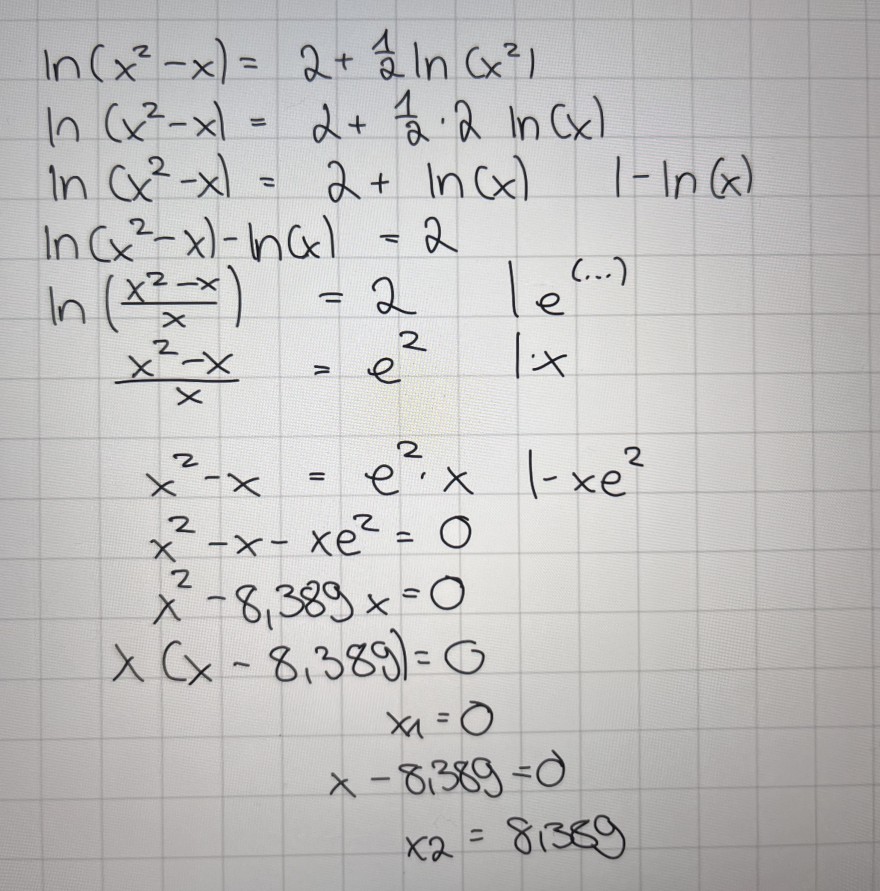 ln(x² - x) = 2 + ½ ln(x²)
ln(x² - x) = 2 + ½ · 2 ln(x)
ln(x² - x) = 2 + ln(x) | - ln(x)
ln(x² - x) - ln(x) = 2
ln((x² - x)/x) = 2 | e^(...)
(x² - x)/x = e² | · x
x² - x = e² · x | - xe²
x² - x - xe² = 0
x² - 8,389x = 0
x(x - 8,389) = 0
x1 = 0
x - 8,389 = 0
x2 = 8,389